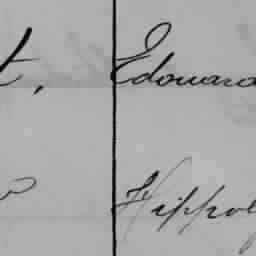 t, Edouard
Hippol